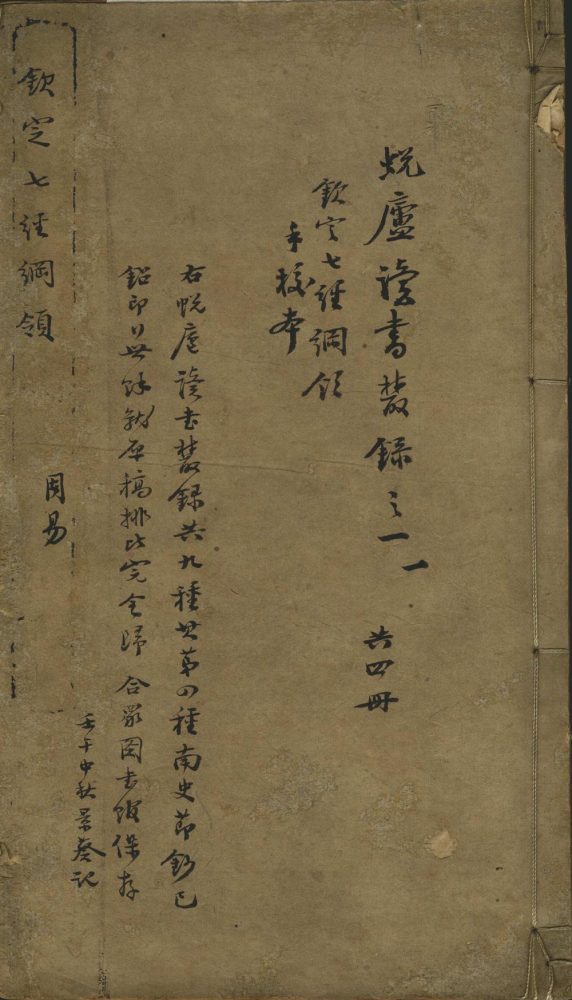 蛻廬讀書叢錄之一 一 共四冊
欽定七經綱領
手校本
右蛻廬讀書叢錄共九種其第四種南史節鈔已
鉛印行世餘就原稿排比完全歸 合眾圖書館保存
壬午中秋景葵記
欽定七經綱領 周易